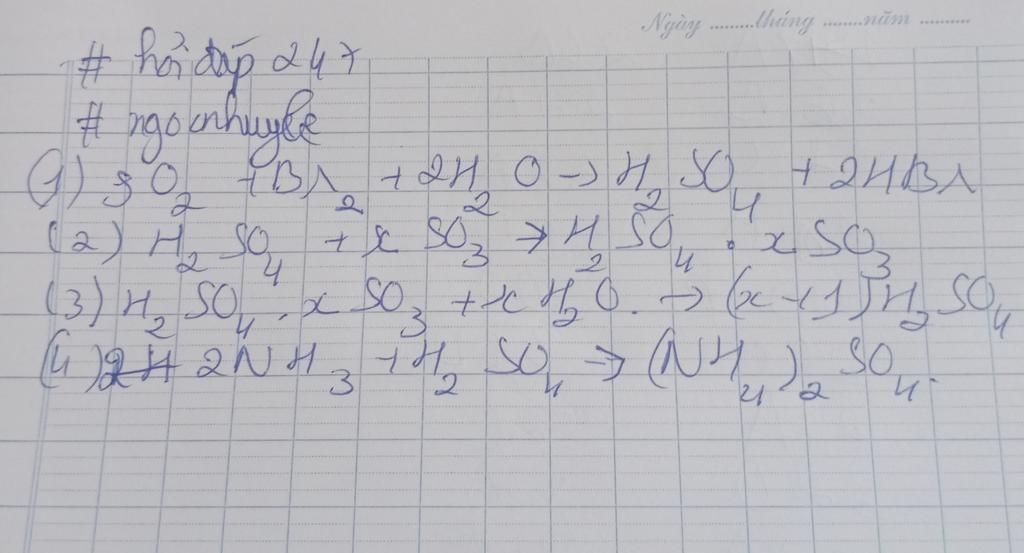 Ngày ......... tháng ........ năm ...........
# hỏi đáp 247
# ngocnhuyle
(1) SO₂ + Br₂ + 2H₂O → H₂SO₄ + 2HBr
(2) H₂SO₄ + xSO₃ → H₂SO₄.xSO₃
(3) H₂SO₄.xSO₃ + xH₂O. → (x+1)H₂SO₄
(4) 2NH₃ + H₂SO₄ → (NH₄)₂SO₄.